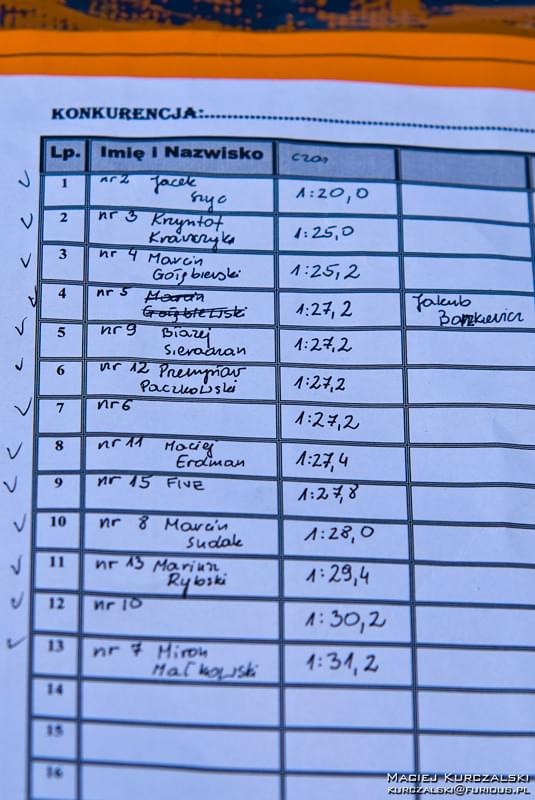 KONKURENCJA:
Lp. Imię i Nazwisko czas
1 nr 2 Jacek 1:20,0
2 nr 3 Krzysztof 1:25,0
Krawczyk
3 nr 4 Marcin 1:25,2
Gołębiewski
4 nr 5 Marcin 1:27,2 Jakub
Gołębiewski
5 nr 9 Błażej 1:27,2
Sieradzan
6 nr 12 Przemysław 1:27,2
Paczkowski
7 nr 6 1:27,2
8 nr 11 Maciej 1:27,4
Erdman
9 nr 15 FIVE 1:27,8
10 nr 8 Marcin 1:28,0
Sudak
11 nr 13 Mariusz 1:29,4
Rybski
12 nr 10 1:30,2
13 nr 7 Miron 1:31,2
Małkowski
14
15
16
MACIEJ KURCZALSKI
KURCZALSKI@FURIOUS.PL